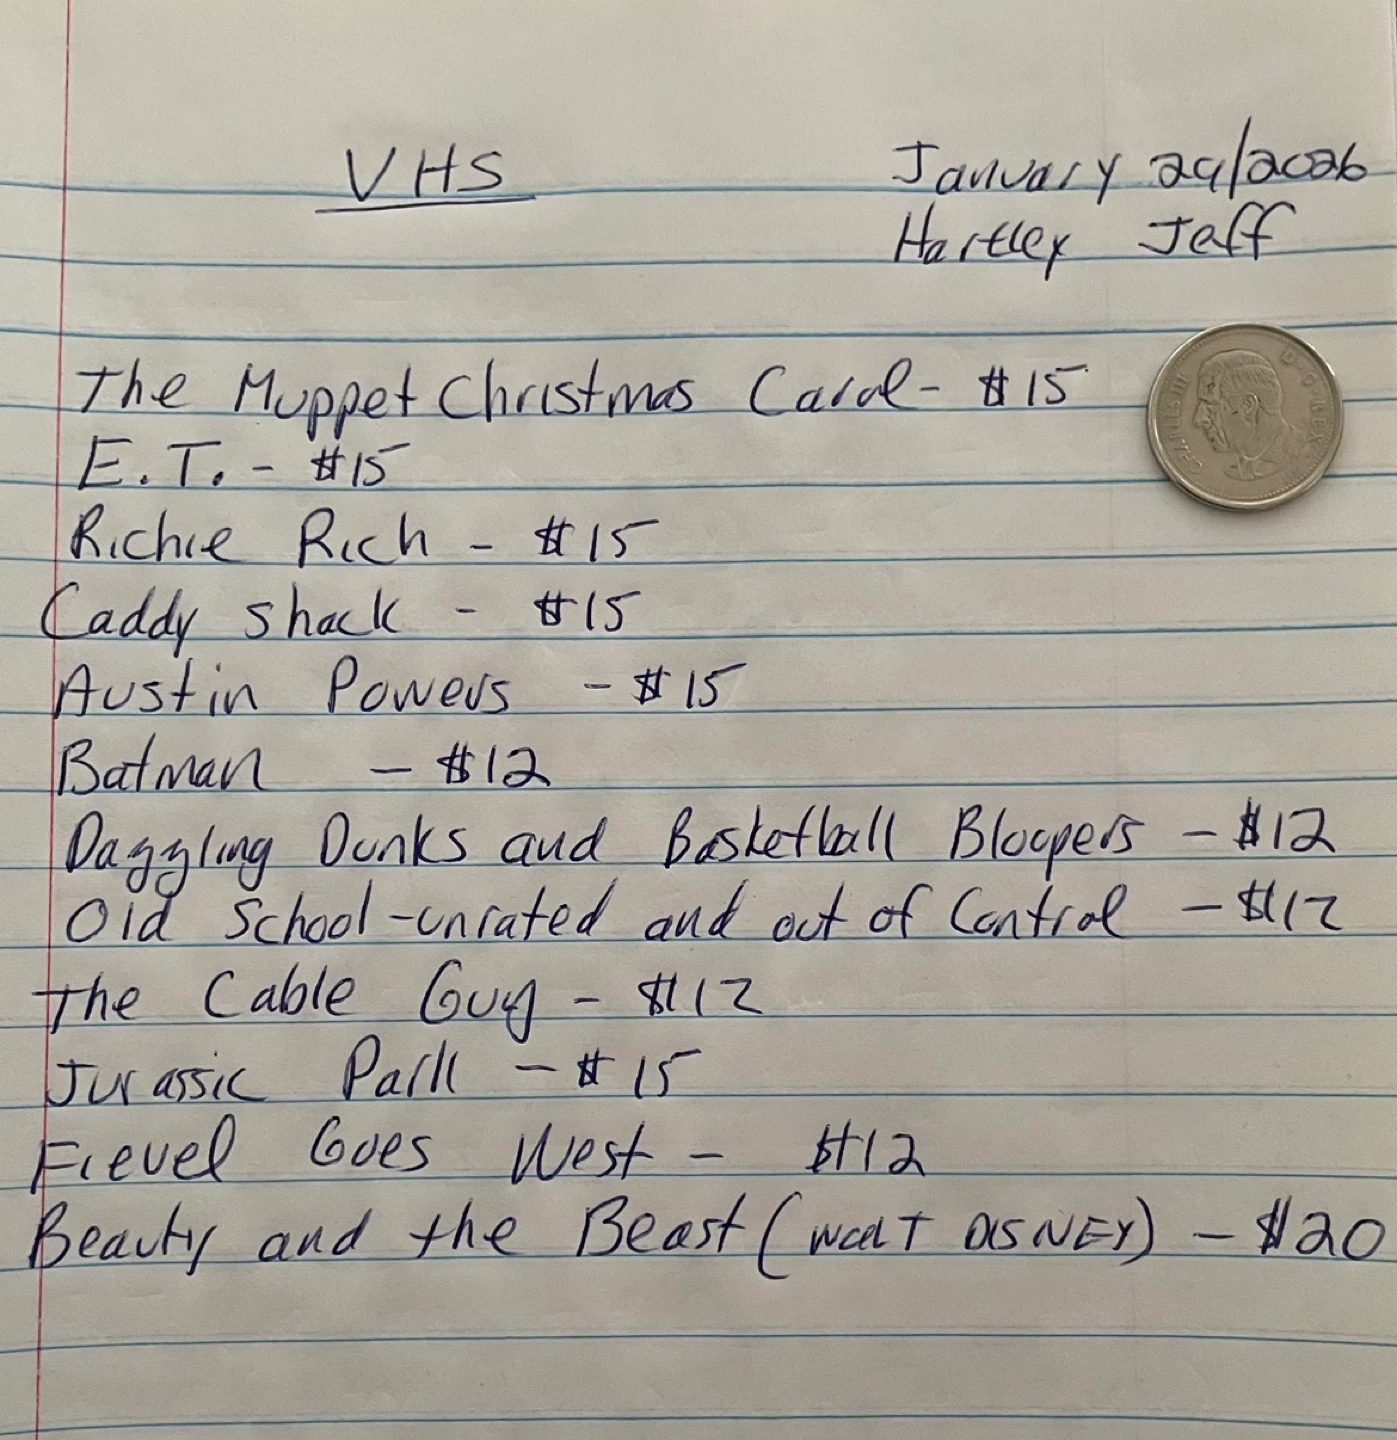 VHS
January 29/2026
Hartley Jeff
The Muppet Christmas Carol - $15
E.T. - $15
Richie Rich - $15
Caddy shack - $15
Austin Powers - $15
Batman - $12
Dazzling Dunks and Basketball Bloopers - $12
Old School - unrated and out of Control - $12
The Cable Guy - $12
Jurassic Park - $15
Fievel Goes West - $12
Beauty and the Beast (WALT DISNEY) - $20
CHARLES III D·G·REX